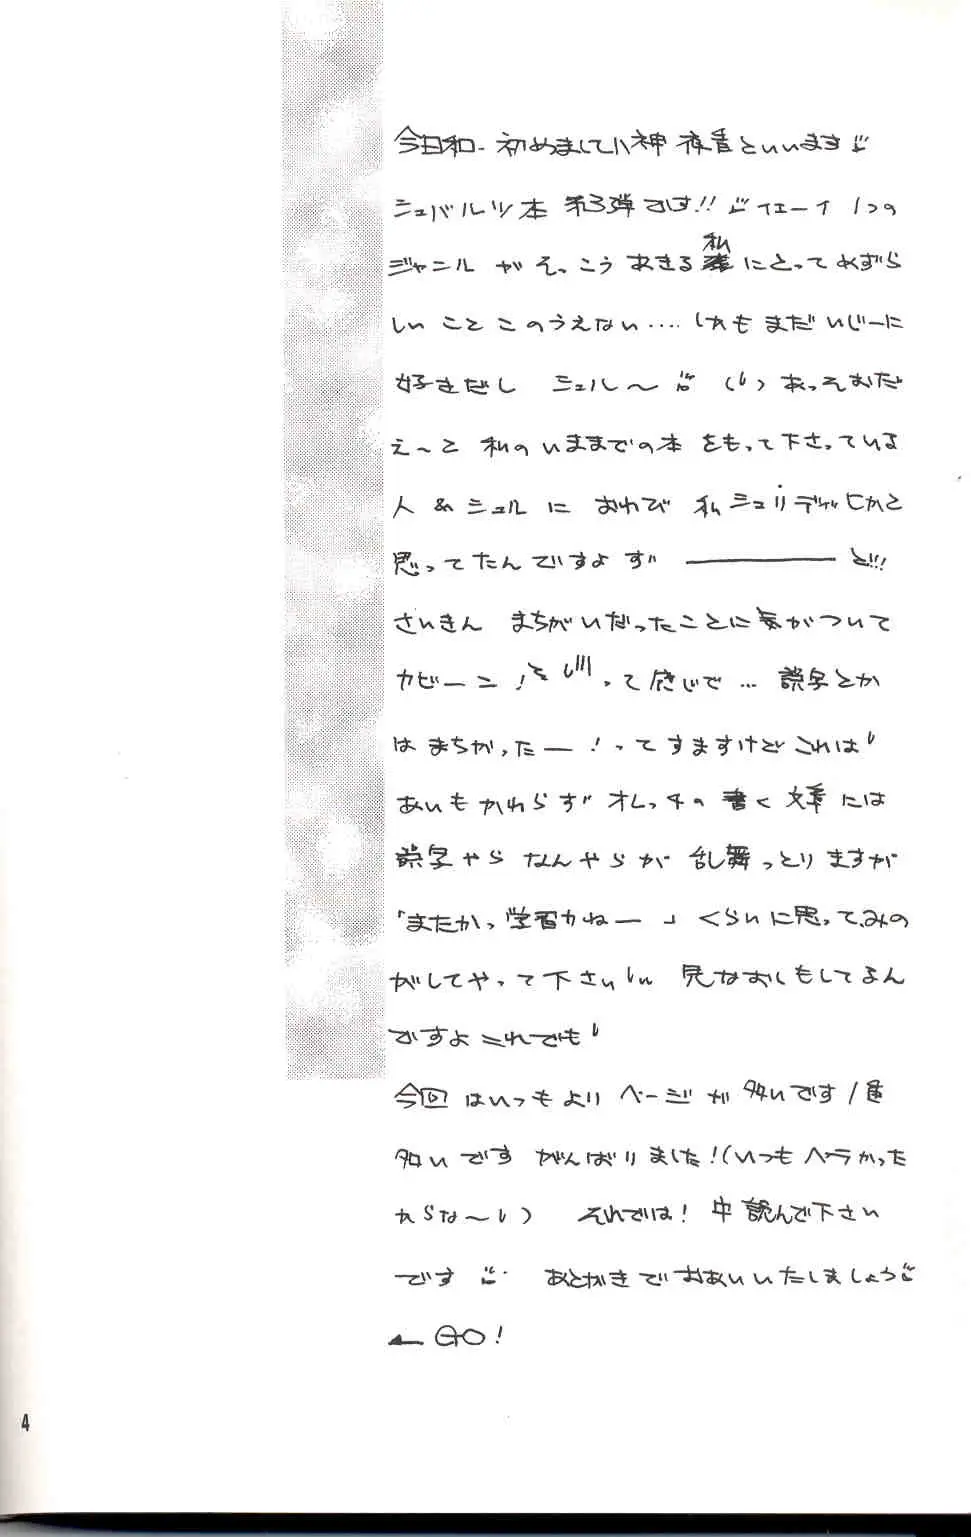 今日和-初めまして小神夜香といいます♪
シュバルツ本 第3弾です!!♪イエーイ 1つの
ジャンル がそっこう あきる 私達にとって めずら
しい こと このうえない.... しかも まだ いじーに
好きだし シュル～ (し) あっそおだ
え～と 私の いままでの本 をもって下さっている
人 & シュル に おわび 私 シュリディッヒかと
思ってたんですよ ず――――と!!!
さいきん まちがいだったことに気がついて
カビーン! って感じで... 誤字とか
は まちがったー!ってすますけど これは
あいもかわらず オレっチの書く文章には
誤字やら なんやらが 乱舞っとりますが
「またかっ学習力ねー」くらいに思ってみの
がしてやって下さい 見なおしもしてるん
ですよ これでも
今回 はいつもより ページが 多いです 1番
多いです がんばりました!(いつも ペラかった
からな～し) それでは! 中 読んで下さい
です あとがきで おあいいたしましょう
← GO!
4